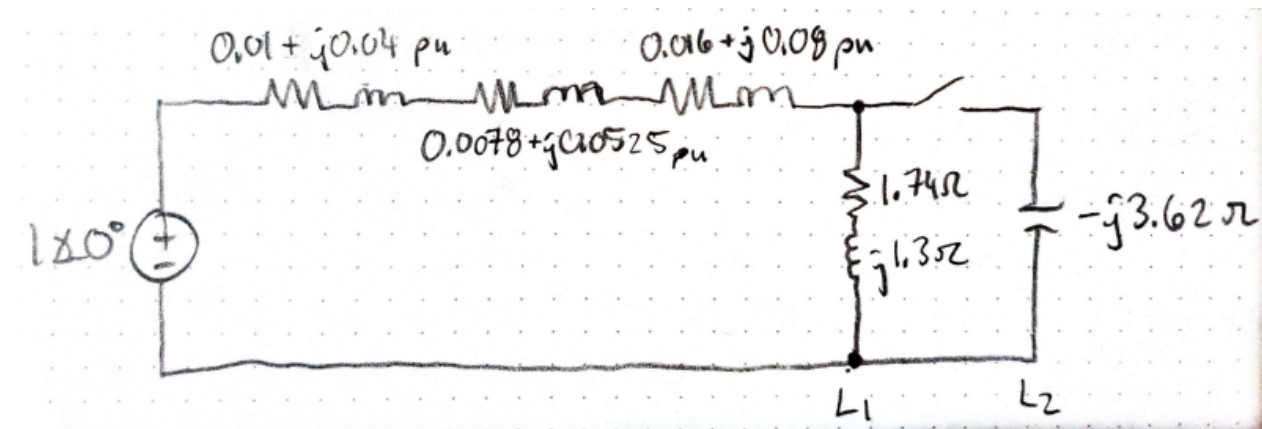 0.01 + j0.04 pu
0.016 + j0.08 pu
0.0078 + j0.0525 pu
1∠0°
+
-
1.74Ω
j1.3Ω
-j3.62Ω
L1
L2